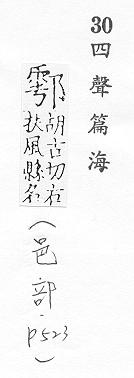 30四聲篇海
鄠胡古切右
扶風縣名
(邑部·p523)